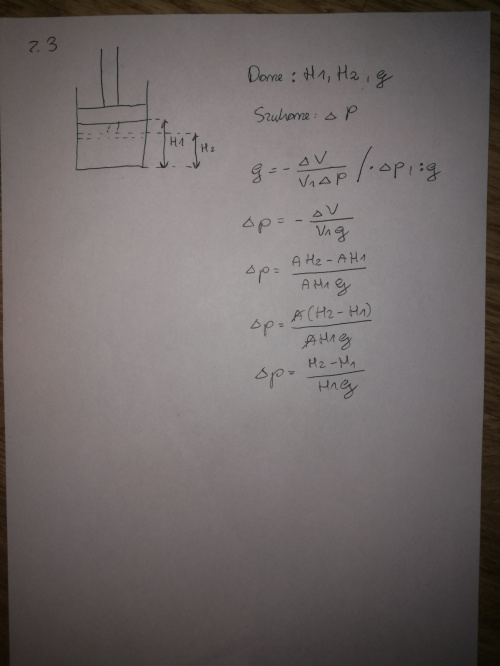 z. 3
Dane : H1, H2 , g
Szukane: Δ P
H1
H2
g = - ΔV / V1 Δp /· Δp, :g
Δp = - ΔV / V1 g
Δp = AH2 - AH1 / AH1 g
Δp = A(H2 - H1) / AH1 g
Δp = H2 - H1 / H1 g